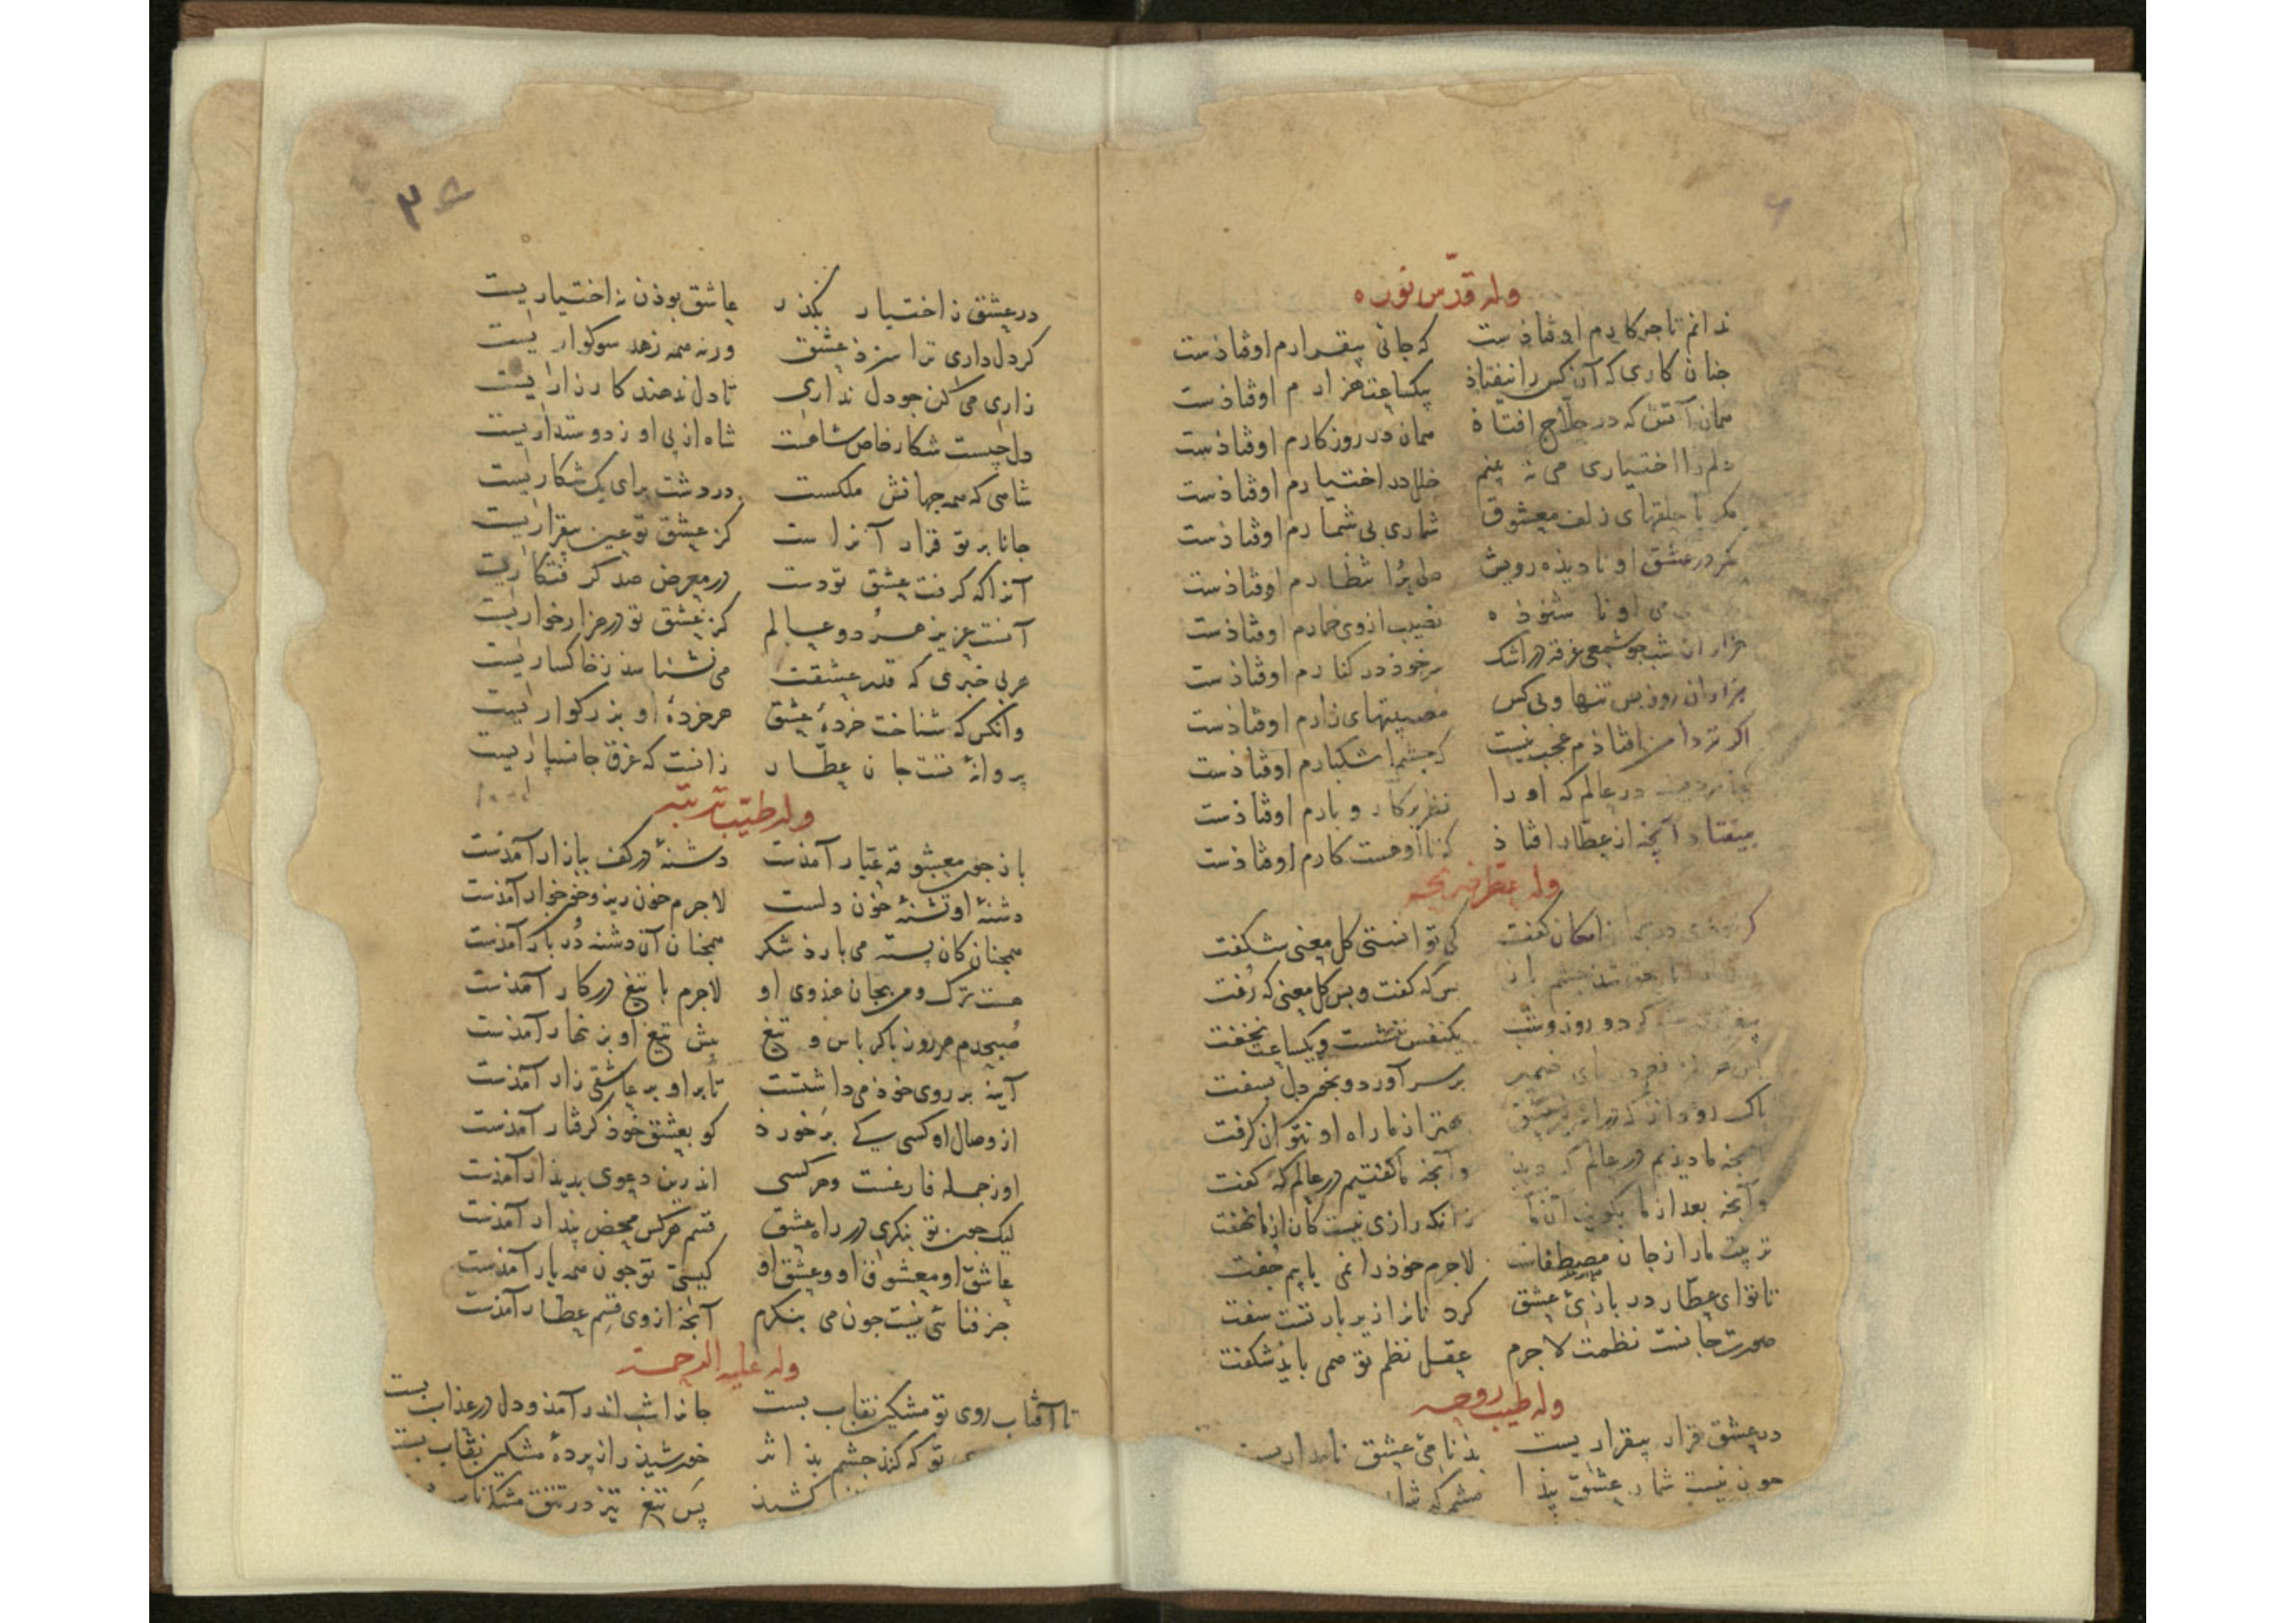 ۶
وله قدّس نوره
ندانم تا جه کارم اوفتاذست که جانی بیقرارم اوفتاذست
جنان کاری که آن کس را نیفتاذ بیکساعت هزارم اوفتاذست
همان آتش که در حلّاج افتاذ همان در روزکارم اوفتاذست
دلم را اختیاری می نه بینم خلل در اختیارم اوفتاذست
مکر با حلقهای زلف معشوق شماری بی شمارم اوفتاذست
مکر در عشق او نادیذه رویش دلی پُر انتظارم اوفتاذست
می او نا شنوذه نصیب از وی خمارم اوفتاذست
هزاران شب جو شمعی غرقه در اشک سر خوذ در کنارم اوفتاذست
هزاران روز بس تنها و بی کس مصیبتهای زارم اوفتاذست
اکر تر دامن افتاذم عجب نیست که جشم اشکبارم اوفتاذست
در عالم که او را نظر بر کار و بارم اوفتاذست
بیفتاد آنچه از عطّار افتاذ که تا او هست کارم اوفتاذست
وله عطّر ضریحه
امکان کفت کی توانستی کل معنی شکفت
جشم باز بس که کفت و بس کل معنی که رُفت
کرد و روز و شب یکنفس ننشست و یکساعت نخفت
بر سر آورد و بخوَر دل بسفت
باک رو داند که در اسرار عشق بهتر از ما راه او نتوان کرفت
آنجه ما دیذیم در عالم که دید وآنجه ما کفتیم در عالم که کفت
وآنجه بعد از ما بکویند آن ما زانکه رازی نیست کان از ما نهفت
تربیت ما را ز جان مصطفاست لاجرم خوذ را نمی یابیم جفت
تا تو ای عطّار در بازیٔ عشق کرد نانرا زیر بار تست سفت
صورت جانست نظمت لاجرم عقل نظم تو همی بایذ شکفت
وله طیب روحه
در عشق قرار بیقراریست بذنامیٔ عشق نامداریست
جون نیست شمار عشق پیذا
۳
در عشق ز اختیار بکذر عاشق بوذن نه اختیاریست
کر دل داری ترا سزد عشق ورنه همه زهد سوکواریست
زاری می کن جو دل نداری تا دل ندهند کار زاریست
دل چیست شکار خاص شاهست شاه از پی او ز دوستداریست
شاهی که همه جهانش ملکست در دشت برای یک شکاریست
جانا بر تو قرار آنراست کز عشق تو عین بیقراریست
آنرا که کرفت عشق تو دست در معرض صد کرفتکاریست
آنست عزیز هر دو عالم کز عشق تو در هزار خواریست
هر بی خبری که قدر عشقت می نشناسد ز خاکساریست
وانکس که شناخت خردهٔ عشق هر خردهٔ او بزرکواریست
پروانهٔ تست جان عطّار زانست که غرق جانسپاریست
وله طیّب تربته
باز جون معشوقه عیّار آمذست دشنهٔ در کف ببازار آمذست
دشنهٔ او تشنهٔ خون دلست لاجرم خون ریز و خونخوار آمذست
همچنان کان پسته می بارد شکر همچنان آن دشنه دُر بار آمذست
هست ترک و من بجان هندوی او لاجرم با تیغ در کار آمذست
صبحدم هر روز با کرباس و تیغ پیش تیغ او بزنهار آمذست
آینه بر روی خوذ می داشتست تا بر او بر عاشقی زار آمذست
از وصال او کسی کی بَرخورد کو بعشق خوذ کرفتار آمذست
او ز جمله فارغست و هر کسی اندرین دعوی بدیدار آمذست
لیک جون تو بنکری در راه عشق قسم هر کس محض پندار آمذست
عاشق او معشوق او و عشق او کیستی تو جون همه یار آمذست
جز فنائی نیست جون می بنکرم آنچه از وی قسم عطّار آمذست
وله علیه الرحمة
تا آفتاب روی تو مشکین نقاب بست جانرا شب اندر آمذ و دل در عذاب بست
تو که کند جشم بذ اثر خورشیذ را ز پردهٔ مشکین نقاب بست
کشیذ پس تیغ تیز در تتق مشک ناب